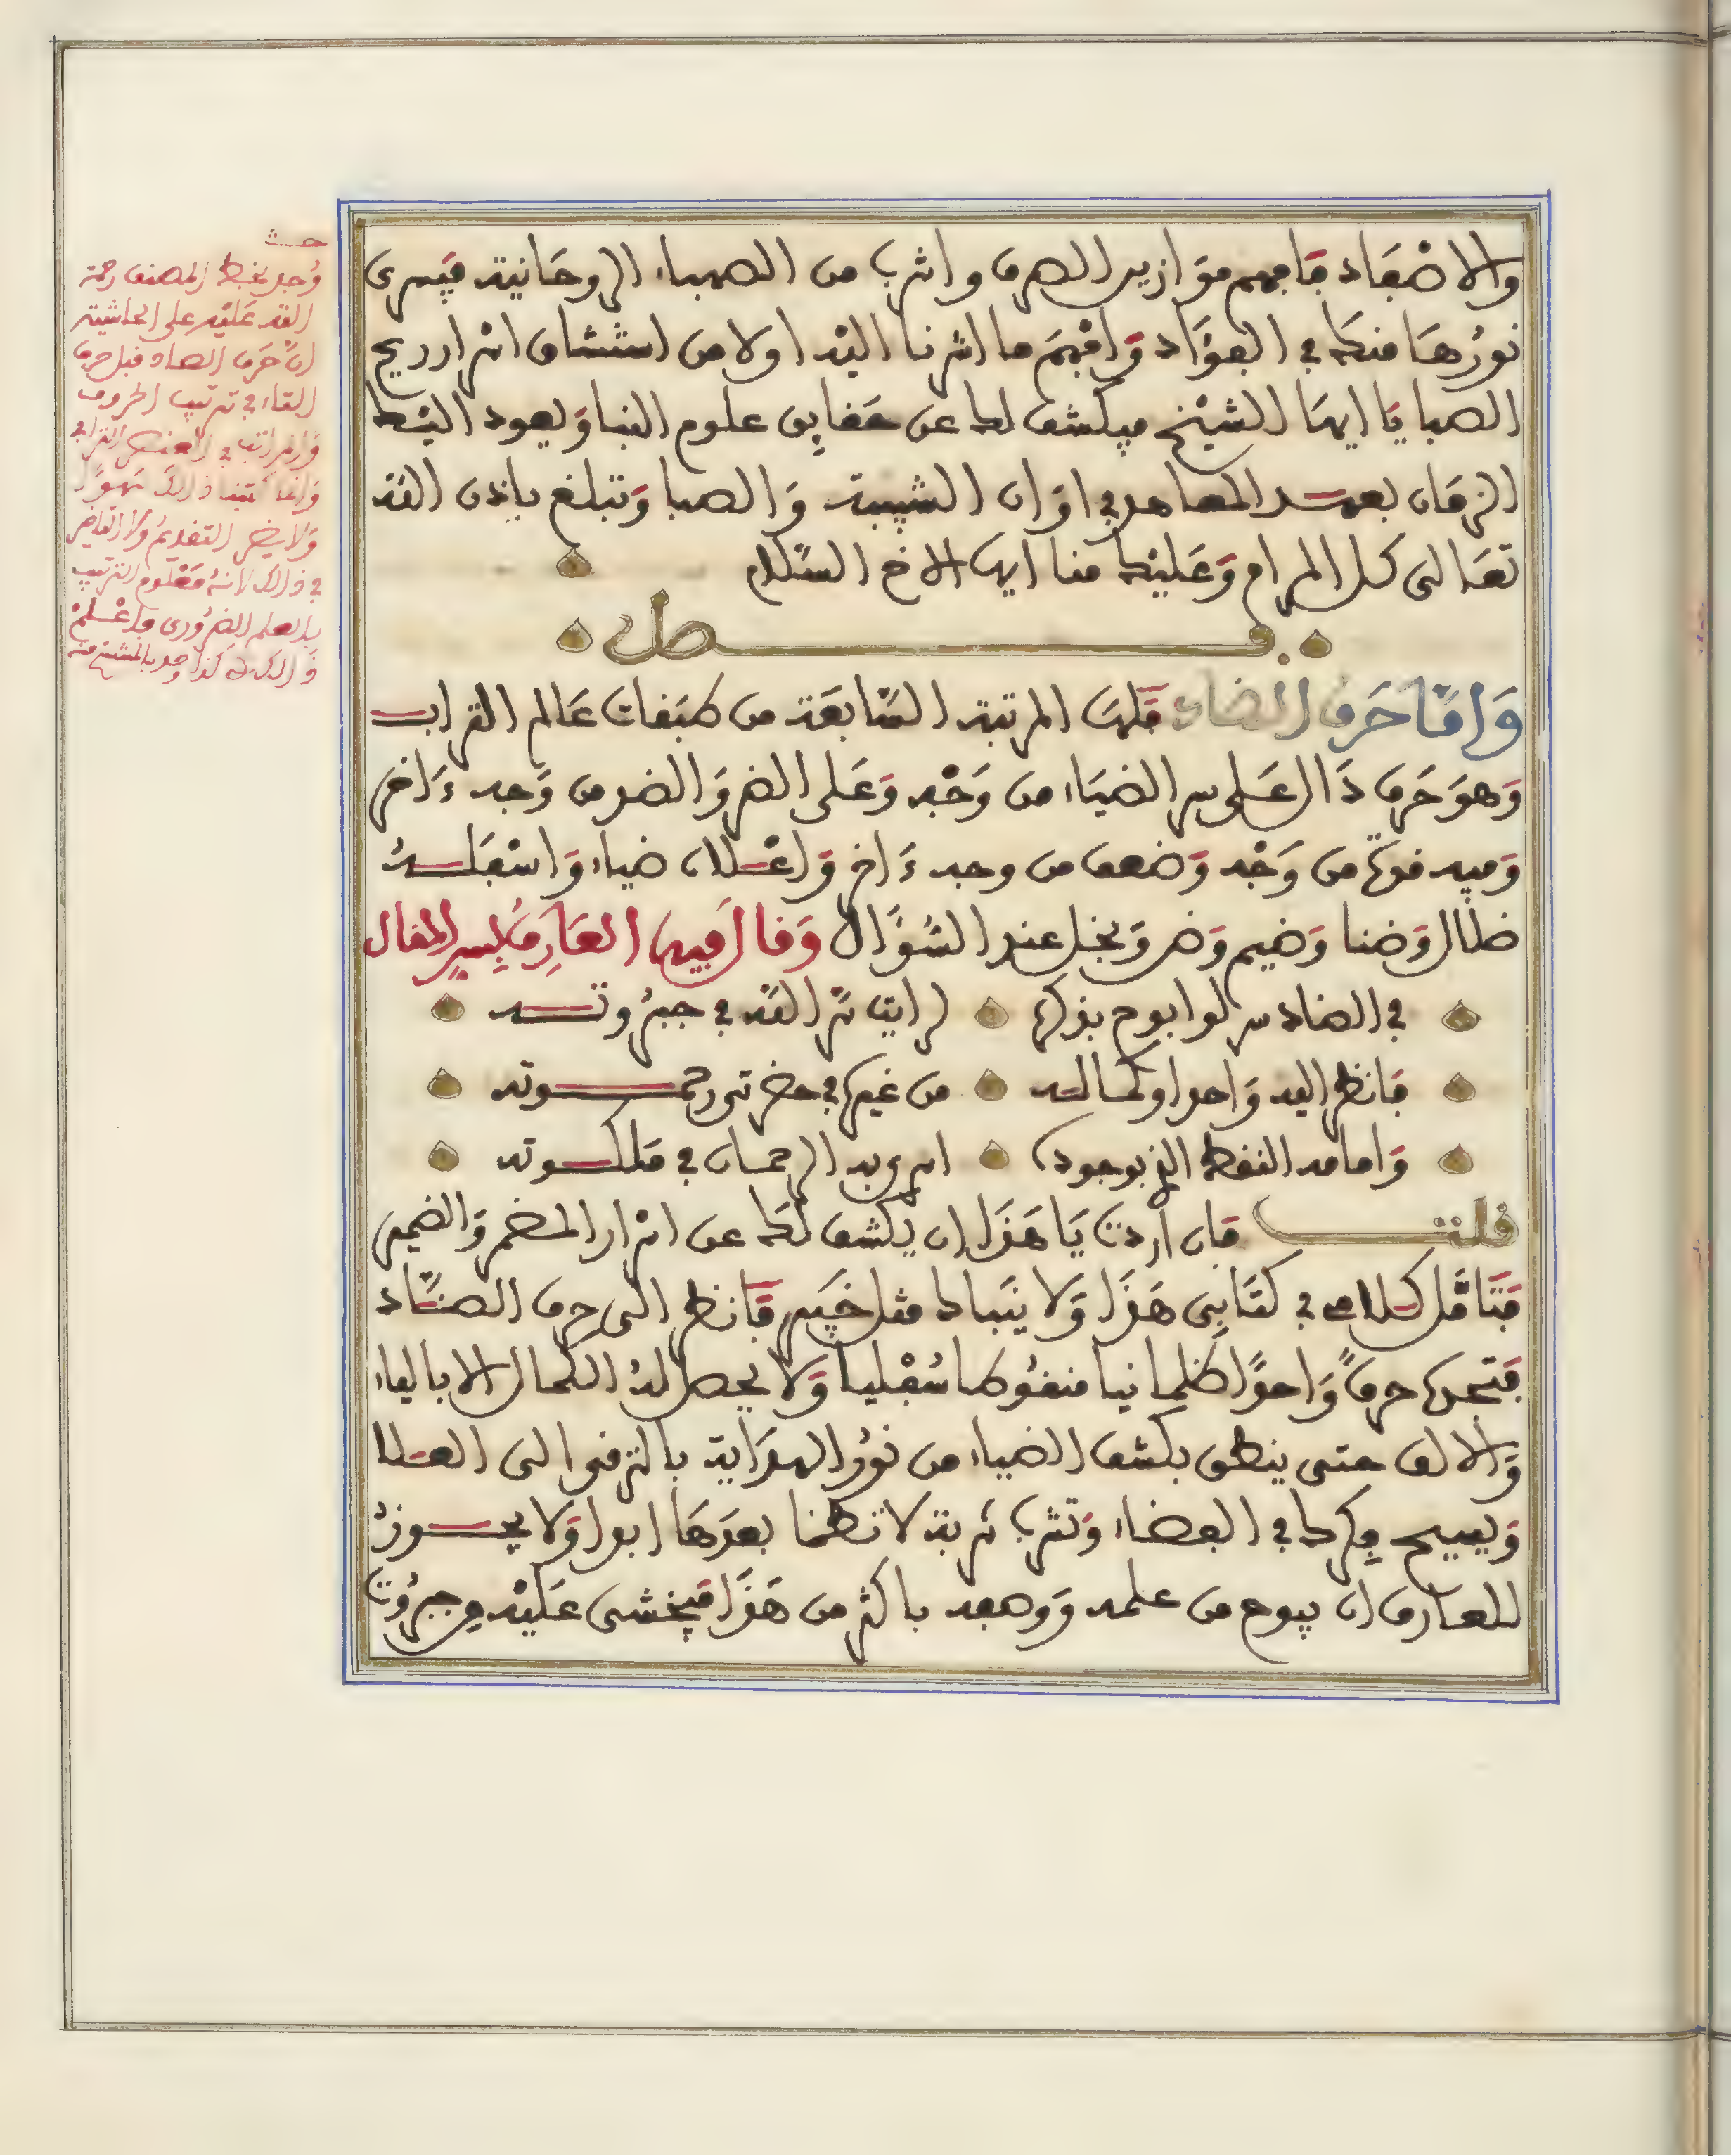 والاضعاد فافهم موازين الصرف واشرب من الصهباء الروحانية فيسرى
نورها منك في الفؤاد وافهم ما اشرنا اليه اولا من استنشاق اسرار ريح
الصبا يا ايها الشيخ فيكشف لك عن حقايق علوم النبا ويعود اليك
الزمان بعهد المعاهد في اوان الشبيبة والصبا وتبلغ باذن الله
تعالى كل المرام وعليك منا ايها الاخ السلام
فصل
واما حرف الضاد فلها المرتبة السابعة من طبقات عالم التراب
وهو حرف دال على سر الضياء من وجه وعلى الضر والضد من وجه ءاخر
وفيه قوة من وجه وضعف من وجه ءاخر واعلاه ضياء واسفله
ضلال وضنا وضيم وضر وبخل عند السؤال وقال فيها العارف لسر المقال
في الضاد سر لو ابوح بذكره لرايت سر الله في جبروته
فانظر اليه واحدا وكماله من غيره في حضرتي رحموته
وامامه اللفظ الذي بوجوده اسرى به الرحمان في ملكوته
قلت فان اردت يا هذا ان يكشف لك عن اسرار المضمر والضمير
فتامل كلامى في كتابى هذا ولا ينبئك مثل خبير فانظر الى حرف الضاد
فتجده حرفا واحدا ظلمانيا منقوطا سفليا ولا يحصل له الكمال الا بالياء
والالف حتى ينطق بكشف الضياء من نور الهداية بالترقي الى العلا
ويسيح فكرك في الفضاء وتشرب شربة لا تظما بعدها ابدا ولا يجوز
للعارف ان يبوح من علمه ووهبه باكثر من هذا فيخشى عليه من جبروت
وجد بخط المصنف رحمة
الله عليه على الحاشية
ان حرف الضاد قبل حرف
الفاء في ترتيب الحروف
والمراتب في العنصر الترابي
وانما كتبنا ذلك سهوا
ولا يضر التقديم ولا التاخير
في ذلك لانه معلوم الترتيب
بالعلم الضروري فاعلم
ذالك كذا وجد بالمنتسخ منه